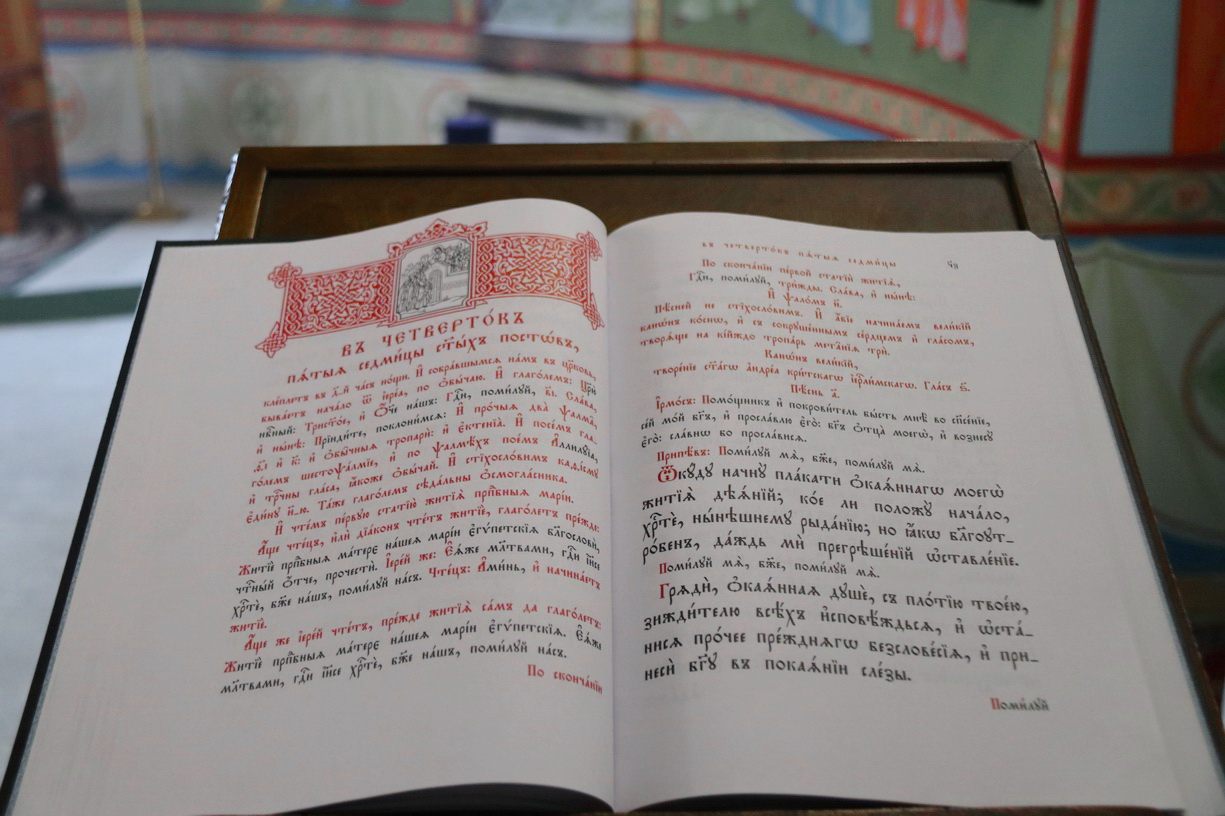 въ четверто́къ
пѧ́тыѧ седми́цы ст҃ы́хъ посто́въ,
клéплетъ въ д҃-й ча́съ но́щи. И҆ собра́вшымсѧ на́мъ въ цр҃ковь,
быва́етъ нача́ло ѿ і҆ере́а, по ѻ҆бы́чаю. И҆ глаго́лемъ: Цр҃ю̀
нбⷭ҇ный: Трист҃о́е, и҆ Ѻ҆́ч҃е на́шъ: Гдⷭ҇и, поми́лꙋй, в҃і. Сла́ва,
и҆ ны́нѣ: Прїиди́те, поклони́мсѧ: И҆ про́чыѧ два̀ ѱалма̑,
и҆ в҃: и҆ ѻ҆бы̑чныѧ тропарѝ: и҆ є҆ктенїа̀. И҆ посе́мъ гла-
го́лемъ шестоѱа́лмїе, и҆ по ѱалмѣ́хъ пое́мъ А҆ллилꙋ́їа,
и҆ трⷪ҇чны гла́са, ꙗ҆́коже ѻ҆бы́чай. И҆ стїхосло́вимъ каѳі́смꙋ
є҆ди́нꙋ и҃-ю. Та́же глаго́лемъ сѣда́льны ѻ҆смогла́сника.
И҆ чте́мъ пе́рвꙋю статїю̀ житїѧ̀ прпⷣбныѧ марі́и.
А҆́ще чте́цъ, и҆лѝ дїа́конъ чте́тъ житїѐ, глаго́летъ пре́жде:
Житїѐ прпⷣбныѧ ма́тере на́шеѧ марі́и є҆гѵ́петскїѧ благословѝ,
чтⷭ҇ны́й ѻ҆́тче, проче́сти. І҆ере́й же: Е҆ѧ́же мл҃твами, гдⷭ҇и і҆и҃се
хрⷭ҇тѐ, бж҃е на́шъ, поми́лꙋй на́съ. Чте́цъ: А҆ми́нь, и҆ начина́етъ
житїѐ.
А҆́ще же і҆ере́й чте́тъ, пре́жде житїѧ̀ са́мъ да глаго́летъ:
Житїѐ прпⷣбныѧ ма́тере на́шеѧ марі́и є҆гѵ́петскїѧ. Е҆ѧ́же
мл҃твами, гдⷭ҇и і҆и҃се хрⷭ҇тѐ, бж҃е на́шъ, поми́лꙋй на́съ.
По сконча́нїи
въ четверто́къ пѧ́тыѧ седми́цы
По сконча́нїи пе́рвой статїѝ житїѧ̀,
Гдⷭ҇и, поми́лꙋй, три́жды. Сла́ва, и҆ ны́нѣ:
И҆ ѱало́мъ н҃.
Пѣ́сней не стїхосло́вимъ. И҆ а҆́бїе начина́емъ вели́кїй
кано́нъ ко́снѡ, и҆ съ сокрꙋше́ннымъ се́рдцемъ и҆ гла́сомъ,
творѧ́ще на кі́йждо тропа́рь мета̑нїѧ трѝ.
Канѡ́нъ вели́кїй,
творе́нїе ст҃а́гѡ а҆ндре́а кри́тскагѡ і҆ерⷭ҇ли́мскагѡ. Гла́съ ѕ҃.
Пѣ́снь а҃.
І҆рмо́съ: Помо́щникъ и҆ покрови́тель бы́сть мнѣ̀ во спⷭ҇нїе,
се́й мо́й бг҃ъ, и҆ просла́влю є҆го̀: бг҃ъ ѻ҆тца̀ моегѡ̀, и҆ вознесꙋ̀
є҆го̀: сла́внѡ во просла́висѧ.
Припѣ́въ: Поми́лꙋй мѧ̀, бж҃е, поми́лꙋй мѧ̀.
Ѿкꙋ́дꙋ начнꙋ̀ пла́кати ѻ҆каѧ́ннагѡ моегѡ̀
житїѧ̀ дѣѧ́нїй; ко́е ли положꙋ̀ нача́ло,
хрⷭ҇тѐ, ны́нѣшнемꙋ рыда́нїю; но ꙗ҆́кѡ бл҃гоꙋт-
ро́бенъ, да́ждь мѝ прегрѣше́нїй ѡ҆ставле́нїе.
Поми́лꙋй мѧ̀, бж҃е, поми́лꙋй мѧ̀.
Грѧдѝ, ѻ҆каѧ́ннаѧ дꙋшѐ, съ пло́тїю твое́ю,
зижди́телю всѣ́хъ и҆сповѣ́ждьсѧ, и҆ ѡ҆ста́-
нисѧ про́чее пре́ждиѧгѡ безслове́сїѧ, и҆ при-
несѝ бг҃ꙋ въ покаѧ́нїи сле́зы.
Поми́лꙋй